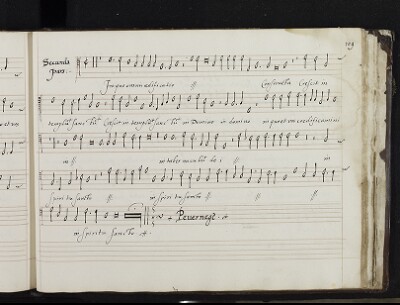 Secunda
pars.
In quo omnis edificatio //
Constructa Crescit in
templū sanctū Crescit in templū sanctū in Domino in domino in quo et vos coedificamini
in //
in habitaculū dei //
in
spiritu sancto //
in spiritu sancto //
//
//
in spiritu sancto
Pevernage